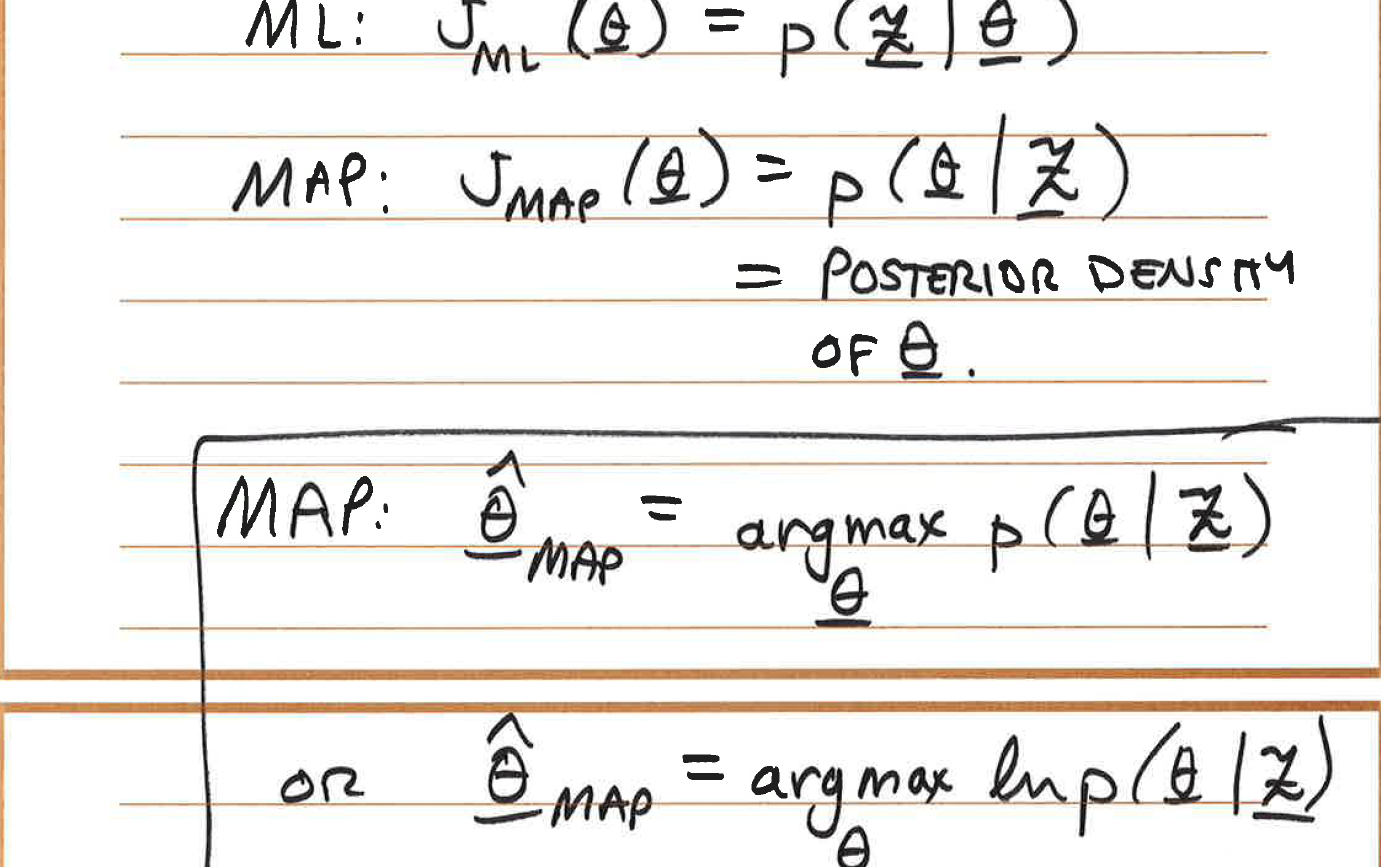 ML: J_ML (θ) = p(z | θ)
MAP: J_MAP (θ) = p(θ | z)
= POSTERIOR DENSITY
OF θ.
MAP: θ̂_MAP = argmax p(θ | z)
θ
OR θ̂_MAP = argmax ln p(θ | z)
θ